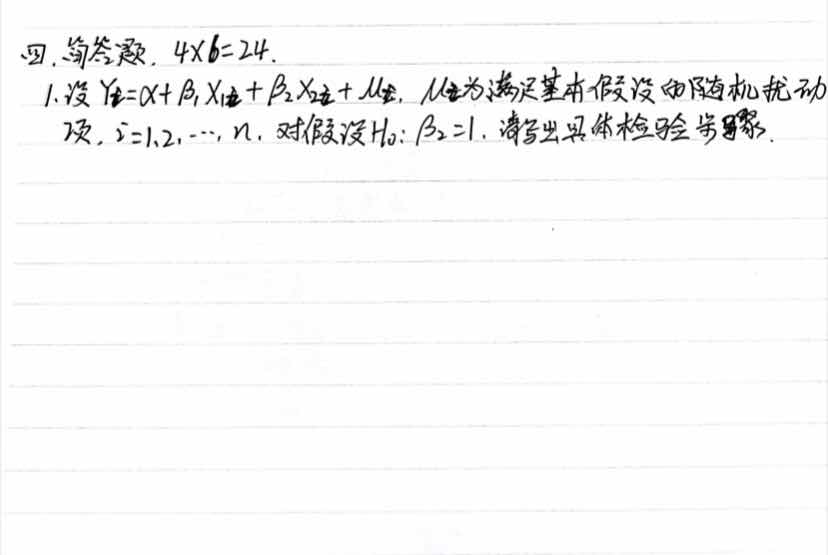 四.简答题. 4×6=24.
1.设 Yi=α+β₁X₁i+β₂X₂i+μi, μi为满足基本假设的随机扰动
项, i=1,2,…,n. 对假设H₀:β₂=1. 请写出具体检验步骤.